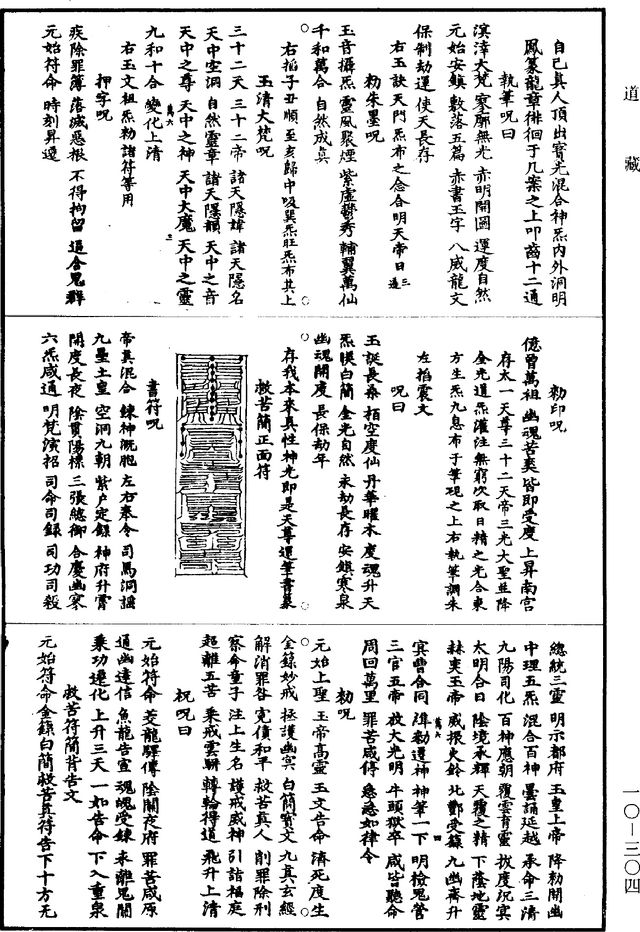 道藏
自己真人頂出寳光混合神炁内外洞明
鳳篆龍章徘徊于几案之上叩齒十二通
執筆呪曰
溟涬大梵 寥廓無光 赤明開圖 運度自然
元始安鎮 敷落五篇 赤書玉字 八威龍文
保制劫運 使天長存
右玉訣天門炁布之念合明天帝日
粉朱墨呪
玉音攝炁 靈風聚煙 紫虛鬱秀 輔翼萬仙
千和萬合 自然成真
右掐子丑順至亥歸中吸巽炁旺炁布其上
玉清大梵呪
三十二天 三十二帝 諸天隱諱 諸天隱名
天中空洞 自然靈章 諸天隱韻 天中之音
天中之尊 天中之神 天中大魔 天中之靈
九和十合 變化上清
右玉文祖炁勑諸符等用
押字呪
疾除罪簿 落滅惡根 不得拘留 逼合鬼群
元始符命 時刻昇遷
勑印呪
億曾萬祖 幽魂苦爽 皆即受度 上昇南宫
存太一天尊三十二天帝三光大聖並降
金光道炁灌注無窮次取日精之光合東
方生炁九息布于筆硯之上右執筆調朱
左掐震文
呪曰
玉誕長桑 栢空度仙 丹華曜木 度魂升天
炁映白簡 金光自然 永劫長存 安鎮寒泉
幽魂開度 長保劫年
存我本來真性神光即是天尊運筆書篆
救苦簡正面符
書符呪
帝真混合 鍊神溉胞 左右奉令 司馬洞謡
九壘土皇 空洞九朝 紫户定録 神府升霄
開度長夜 除貫陽標 三張總御 合慶幽寥
六炁咸通 明梵演招 司命司録 司功司殺
總統三靈 明示都府 玉皇上帝 降勑開幽
中理五炁 混合百神 墨誦延越 承命三清
九陽司化 百神應朝 覆雲育靈 拔度沉冥
太明合日 陰境承輝 天覆之精 下蔭地靈
赫奕玉帝 威振火鈴 北酆受籙 九幽齊升
寘曹合同 諱勑遷神 神筆一下 明檢鬼營
三官五帝 放大光明 牛頭獄卒 咸皆聽命
周回萬里 罪苦咸停 急急如律令
勑呪
元始上聖 玉帝高靈 玉文告命 濟死度生
金籙妙戒 拯護幽冥 白簡寳文 九真玄經
解消罪咎 寃債和平 救苦真人 削罪除刑
察命童子 注上生名 護戒威神 引詣福庭
超離五苦 乘戒雲軿 轉輪得道 飛升上清
祝呪曰
元始符命 茭龍驛傳 陰關夜府 罪苦咸原
通幽達信 魚龍告宣 魂魄受鍊 永離鬼關
乘功遷化 上升三天 一如告命 下入重泉
救苦符簡背告文
元始符命金籙白簡救苦真符告下十方无
一〇—三〇四